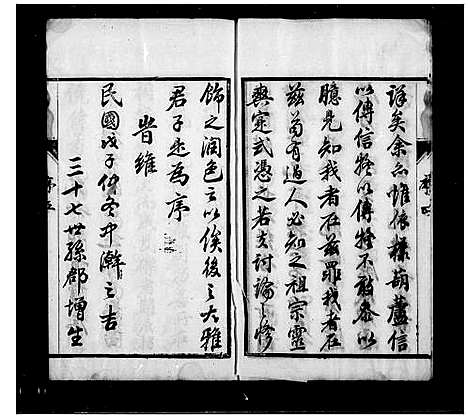 詳矣余亦惟依樣葫蘆信
以傳信疑以傳疑不敢参以
臆見知我者在茲罪我者在
茲苟有過人必知之祖宗靈
爽寔式憑之若夫討論之修
飾之潤色之以俟後之大雅
君子是為序
旹維
民國戊子仲冬中澣之吉
三十七世孫郡增生